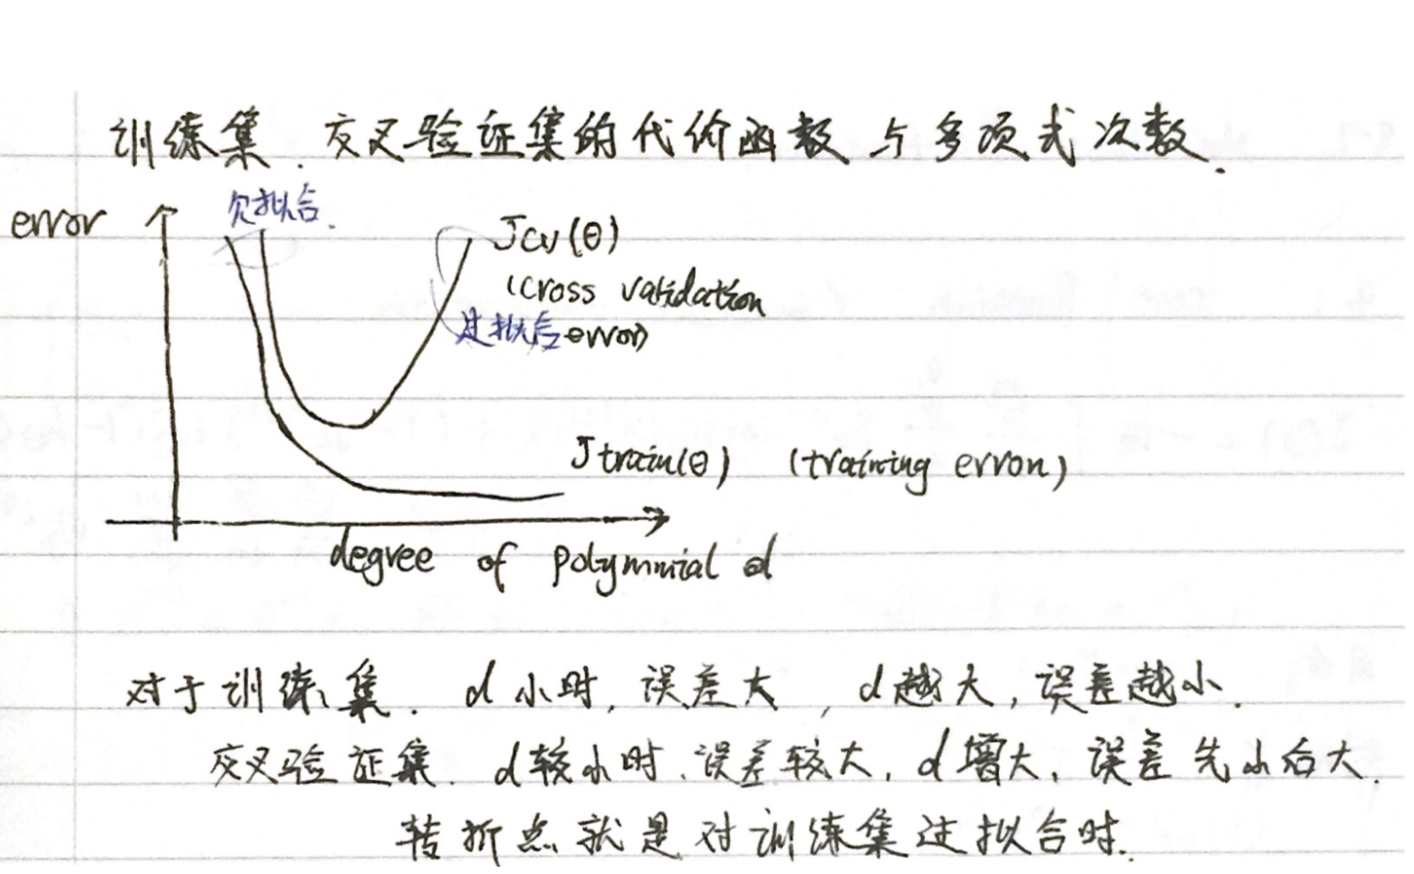 训练集、交叉验证集的代价函数与多项式次数.
error
欠拟合.
Jcv(θ)
(cross validation
过拟合 error)
Jtrain(θ) (training error)
degree of polymnial d
对于训练集. d小时, 误差大, d越大, 误差越小.
交叉验证集. d较小时、误差较大, d增大, 误差先小后大.
转折点就是对训练集过拟合时.